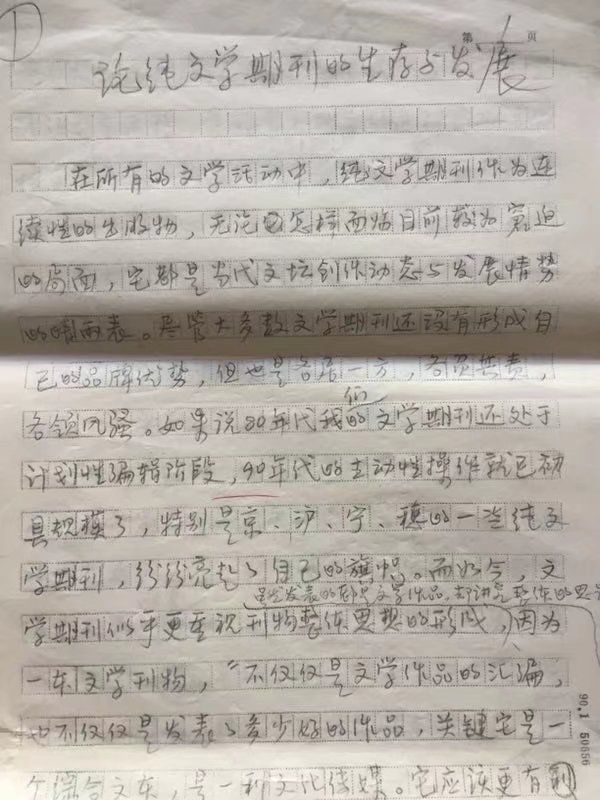 ①
第1页
论纯文学期刊的生存与发展
在所有的文学活动中，纯文学期刊作为连
续性的出版物，无论它怎样面临目前较为窘迫
的局面，它都是当代文坛创作动态与发展情势
的晴雨表。尽管大多数文学期刊还没有形成自
己的品牌优势，但也是各居一方，各负其责，
各领风骚。如果说80年代我们的文学期刊还处于
计划性编辑阶段，90年代的主动性操作就已初
具规模了，特别是京、沪、宁、穗的一些纯文
学期刊，纷纷亮起了自己的旗帜。而如今，文
发表的 文学作品，都讲究整体的
学期刊似乎更重视刊物整体思想的形成，因为
一本文学刊物，“不仅仅是文学作品的汇编，
也不仅仅是发表了多少好的作品，关键它是一
个综合文本，是一种文化传媒。它应该更有利
90.1 50656